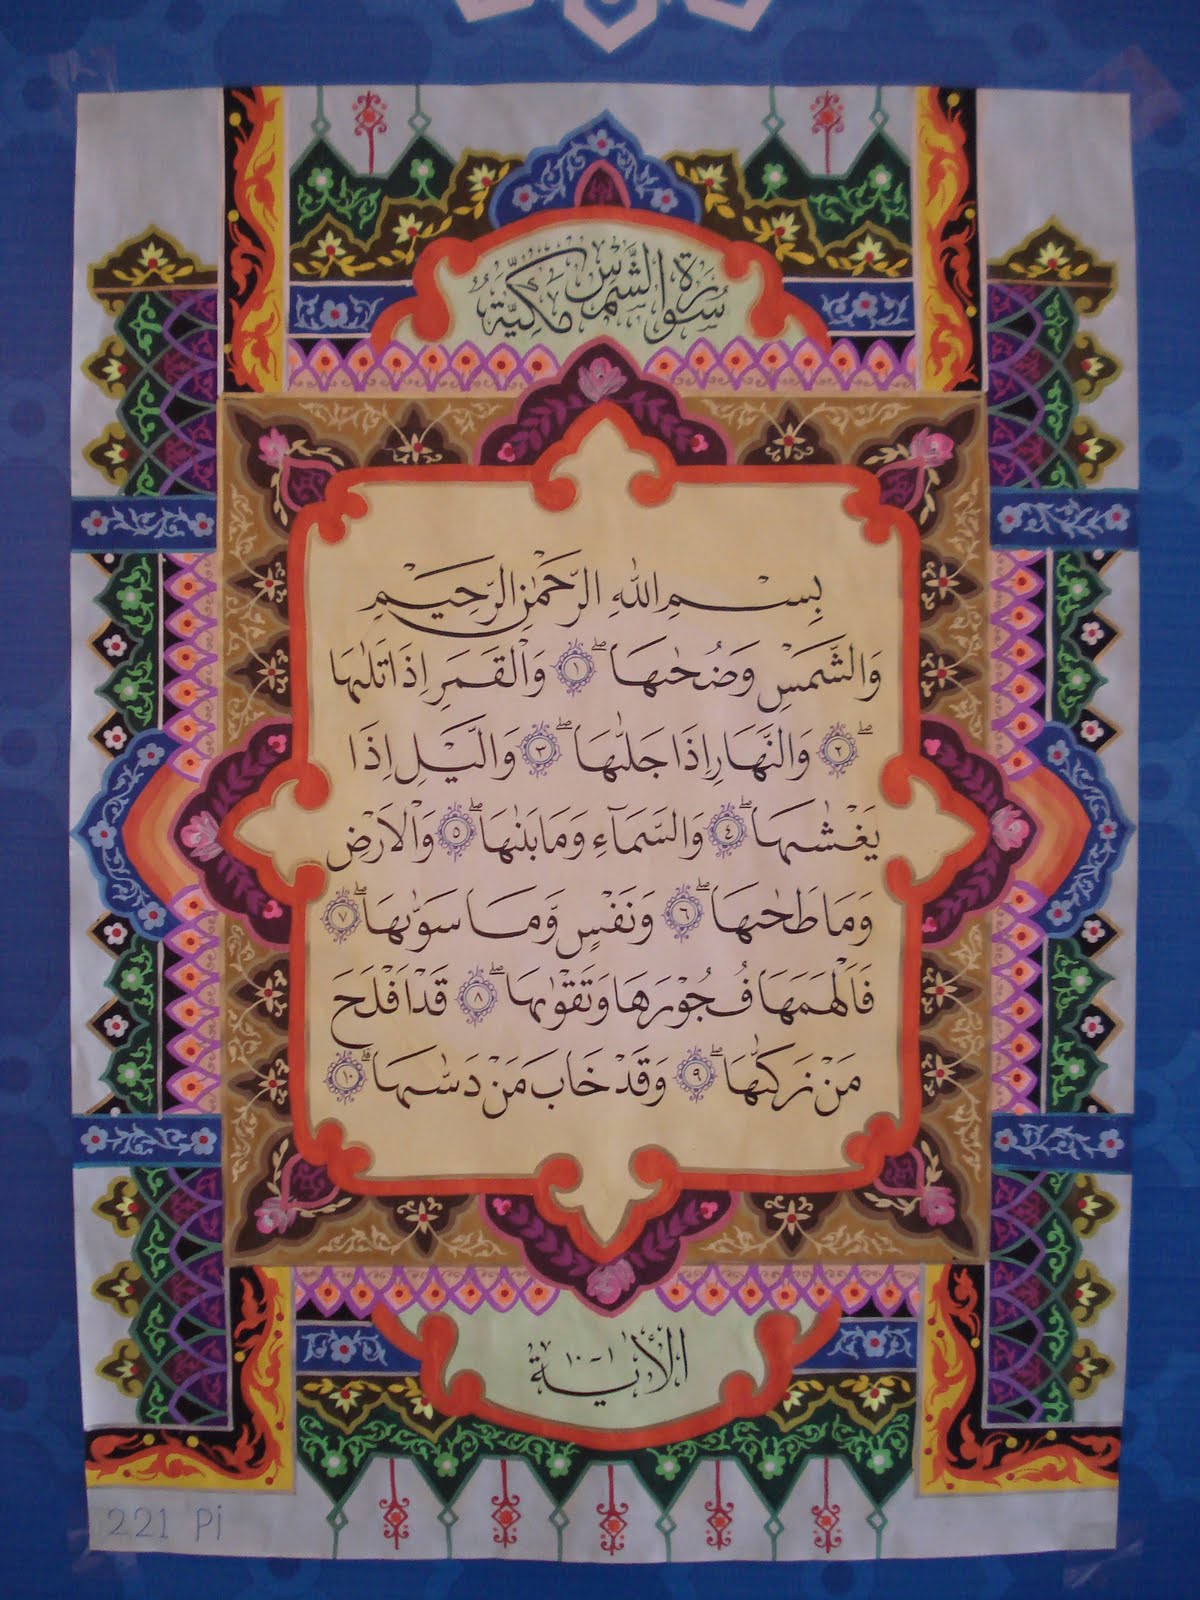 سُورَةُ الشَّمْسِ مَكِّيَّةٌ
بِسْمِ اللّٰهِ الرَّحْمٰنِ الرَّحِيْمِ
وَالشَّمْسِ وَضُحٰىهَا ۖ ١ وَالْقَمَرِ اِذَا تَلٰىهَا
ۖ ٢ وَالنَّهَارِ اِذَا جَلّٰىهَا ۖ ٣ وَالَّيْلِ اِذَا
يَغْشٰىهَا ۖ ٤ وَالسَّمَآءِ وَمَا بَنٰىهَا ۖ ٥ وَالْاَرْضِ
وَمَا طَحٰىهَا ۖ ٦ وَنَفْسٍ وَّمَا سَوّٰىهَا ۖ ٧
فَاَلْهَمَهَا فُجُوْرَهَا وَتَقْوٰىهَا ۖ ٨ قَدْ اَفْلَحَ
مَنْ زَكّٰىهَا ۖ ٩ وَقَدْ خَابَ مَنْ دَسّٰىهَا ۗ ١٠
الْأٰيَة ١-١٠
221 Pi